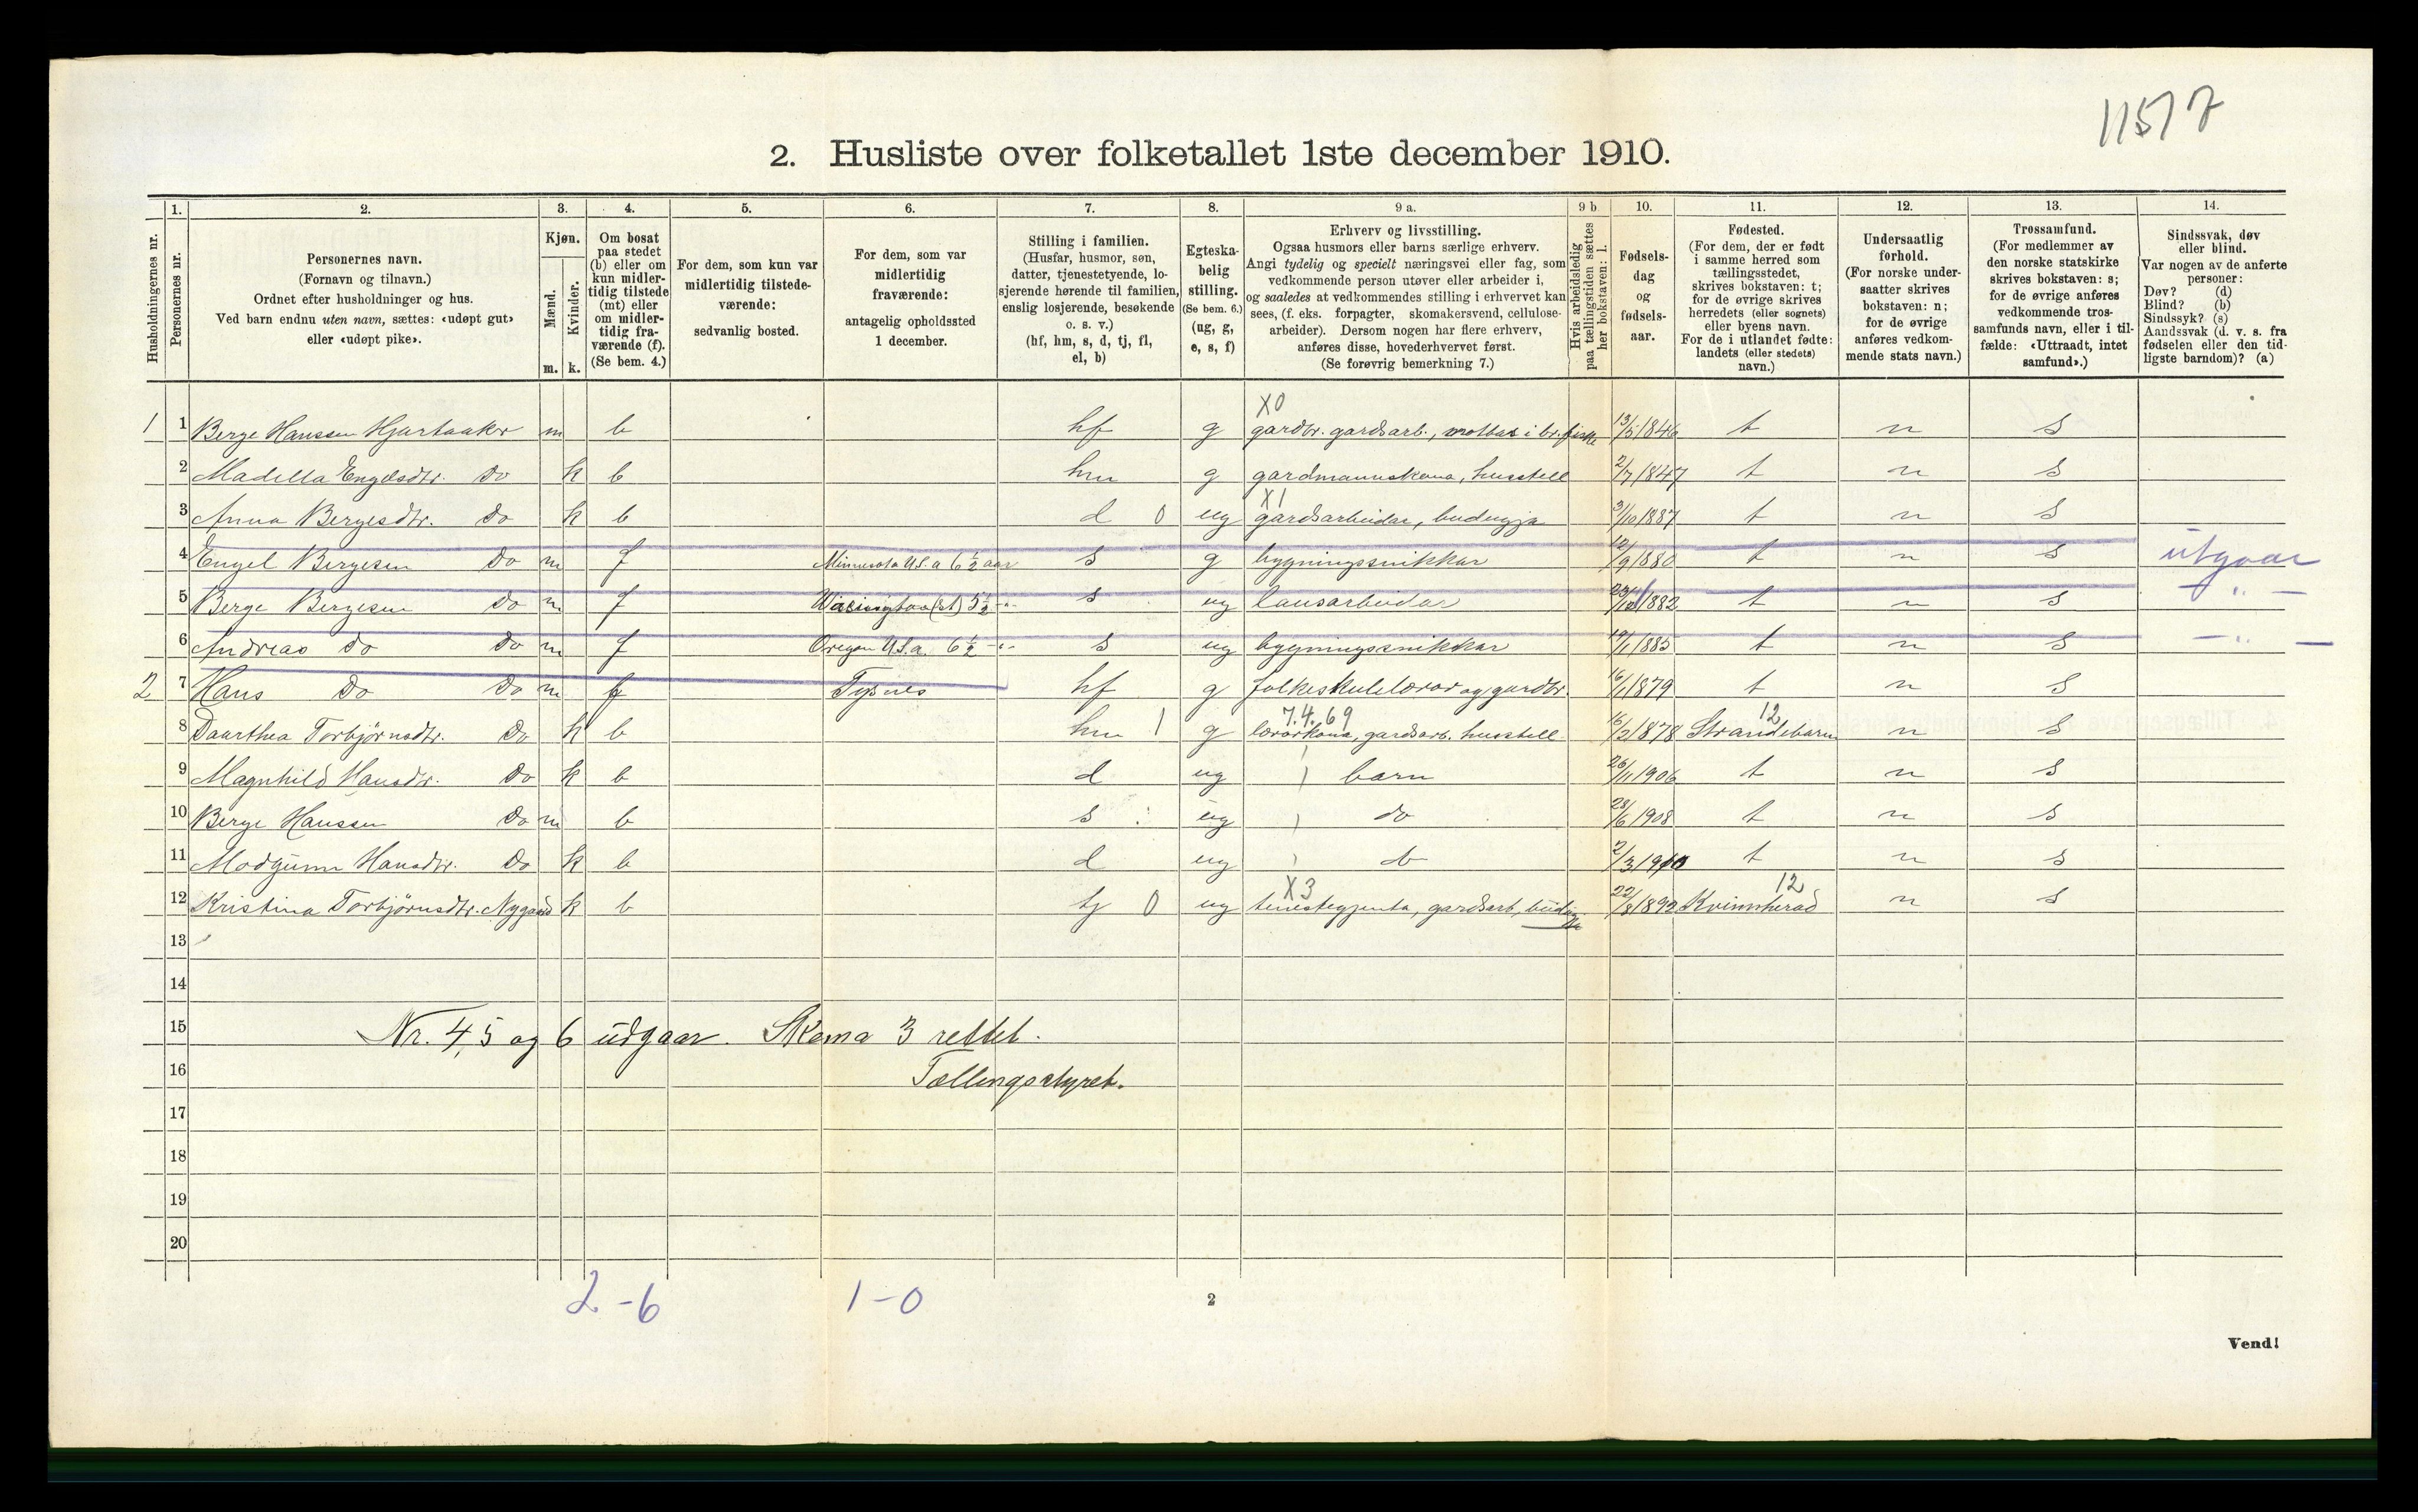 11517
2. Husliste over folketallet 1ste december 1910.
Husholdningernes nr.
1.
Personernes nr.
2.
Personernes navn.
(Fornavn og tilnavn.)
Ordnet efter husholdninger og hus.
Ved barn endnu uten navn, sættes: «udøpt gut»
eller «udøpt pike».
3.
Kjøn.
Mænd.
Kvinder.
m. k.
4.
Om bosat
paa stedet
(b) eller om
kun midler-
tidig tilstede
(mt) eller
om midler-
tidig fra-
værende (f).
(Se bem. 4.)
5.
For dem, som kun var
midlertidig tilstede-
værende:
sedvanlig bosted.
6.
For dem, som var
midlertidig
fraværende:
antagelig opholdssted
1 december.
7.
Stilling i familien.
(Husfar, husmor, søn,
datter, tjenestetyende, lo-
sjerende hørende til familien,
enslig losjerende, besøkende
o. s. v.)
(hf, hm, s, d, tj, fl,
el, b)
8.
Egteska-
belig
stilling.
(Se bem. 6.)
(ug, g,
e, s, f)
9 a.
Erhverv og livsstilling.
Ogsaa husmors eller barns særlige erhverv.
Angi tydelig og specielt næringsvei eller fag, som
vedkommende person utøver eller arbeider i,
og saaledes at vedkommendes stilling i erhvervet kan
sees, (f. eks. forpagter, skomakersvend, cellulose-
arbeider). Dersom nogen har flere erhverv,
anføres disse, hovederhvervet først.
(Se forøvrig bemerkning 7.)
9 b
Hvis arbeidsledig
paa tællingstiden sættes
her bokstaven: l.
10.
Fødsels-
dag
og
fødsels-
aar.
11.
Fødested.
(For dem, der er født
i samme herred som
tællingsstedet,
skrives bokstaven: t;
for de øvrige skrives
herredets (eller sognets)
eller byens navn.
For de i utlandet fødte:
landets (eller stedets)
navn.)
12.
Undersaatlig
forhold.
(For norske under-
saatter skrives
bokstaven: n;
for de øvrige
anføres vedkom-
mende stats navn.)
13.
Trossamfund.
(For medlemmer av
den norske statskirke
skrives bokstaven: s;
for de øvrige anføres
vedkommende tros-
samfunds navn, eller i til-
fælde: «Uttraadt, intet
samfund».)
14.
Sindssvak, døv
eller blind.
Var nogen av de anførte
personer:
Døv? (d)
Blind? (b)
Sindssyk? (s)
Aandssvak (d. v. s. fra
fødselen eller den tid-
ligste barndom)? (a)
X0
1 1 Berge Hanssen Hjartaaker m b hf g gardbr. gardsarb., i br. fiske 13/5 1846 t n s
2 Madella Engelsdtr. Do k b hm g gardmannskona, husstell 2/7 1847 t n s
X1
3 Anna Bergesdtr. Do k b d 0 ug gardsarbeidar, budeigja 3/10 1887 t n s
4 Engel Bergesen Do m f Minnesota U.S.a 6½ aar s g bygningssnikkar 12/9 1880 t n s utgaar
5 Berge Bergesen Do m f Wasington (st) 5½ -"- s ug lausarbeidar 1882 t n s - " -
6 Andreas Do Do m f Oregon U.S.a. 6½ -"- s ug bygningssnikkar 19/1 1885 t n s - " -
2 7 Hans Do Do m f Tysnes hf g folkeskulelærar og gardbr. 16/1 1879 t n s
7.4.69 12
8 Daarthea Torbjørnsdtr. Do k b hm 1 g lærarkona, gardsarb. husstell 16/2 1878 Strandebarm n s
9 Magnhild Hansdtr. Do k b d ug barn 26/11 1906 t n s
10 Berge Hanssen Do m b s ug do 28/6 1908 t n s
11 Modgunn Hansdtr. Do k b d ug do 2/3 1910 t n s
X3 12
12 Kristina Torbjørnsdtr. Nygaard k b tj 0 ug tenestegjenta, gardsarb, budeigja 22/8 1892 Kvinnherad n s
13
14
15 Nr. 4, 5 og 6 udgaar. Skema 3 rettet.
16 Tællingsstyret.
17
18
19
20
2-6 1-0
2
Vend!